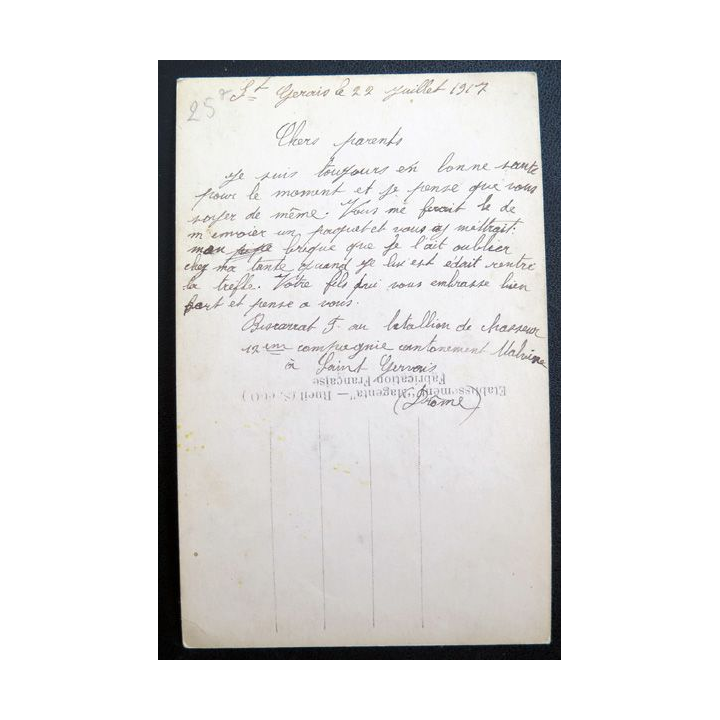 25
St Gerais le 22 juillet 1917
Chers parents
je suis toujours en bonne sante
pour le moment et je pense que vous
soyer de même. Vous me ferait le de
m envoier un paquet et vous y mettrait
mon brique que je l'ait oublier
chez ma tante quand je lui est edait rentre
la trefle. Votre fils qui vous embrasse bien
fort et pense a vous.
Biscarrat F. au batallion de chasseur
12 em compagnie cantonement Malvine
à Saint Gervais
(Drome)
Etablissements "Magenta" — Rueil (S.-et-O.)
Fabrication Française